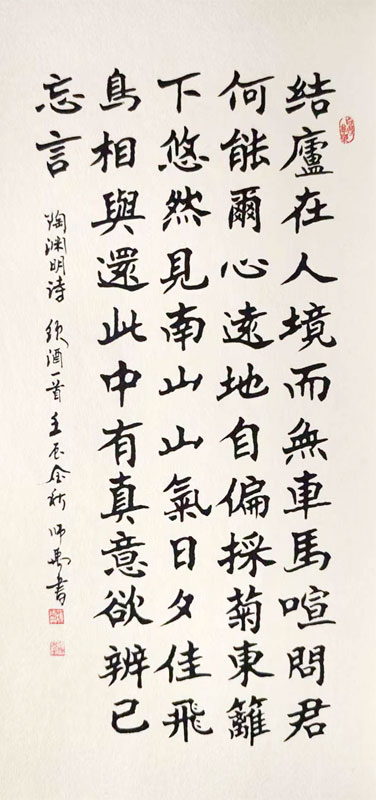 結廬在人境而無車馬喧問君
何能爾心遠地自偏採菊東籬
下悠然見南山山氣日夕佳飛
鳥相與還此中有真意欲辨已
忘言
陶渊明诗 饮酒一首 壬辰金秋 师禹書